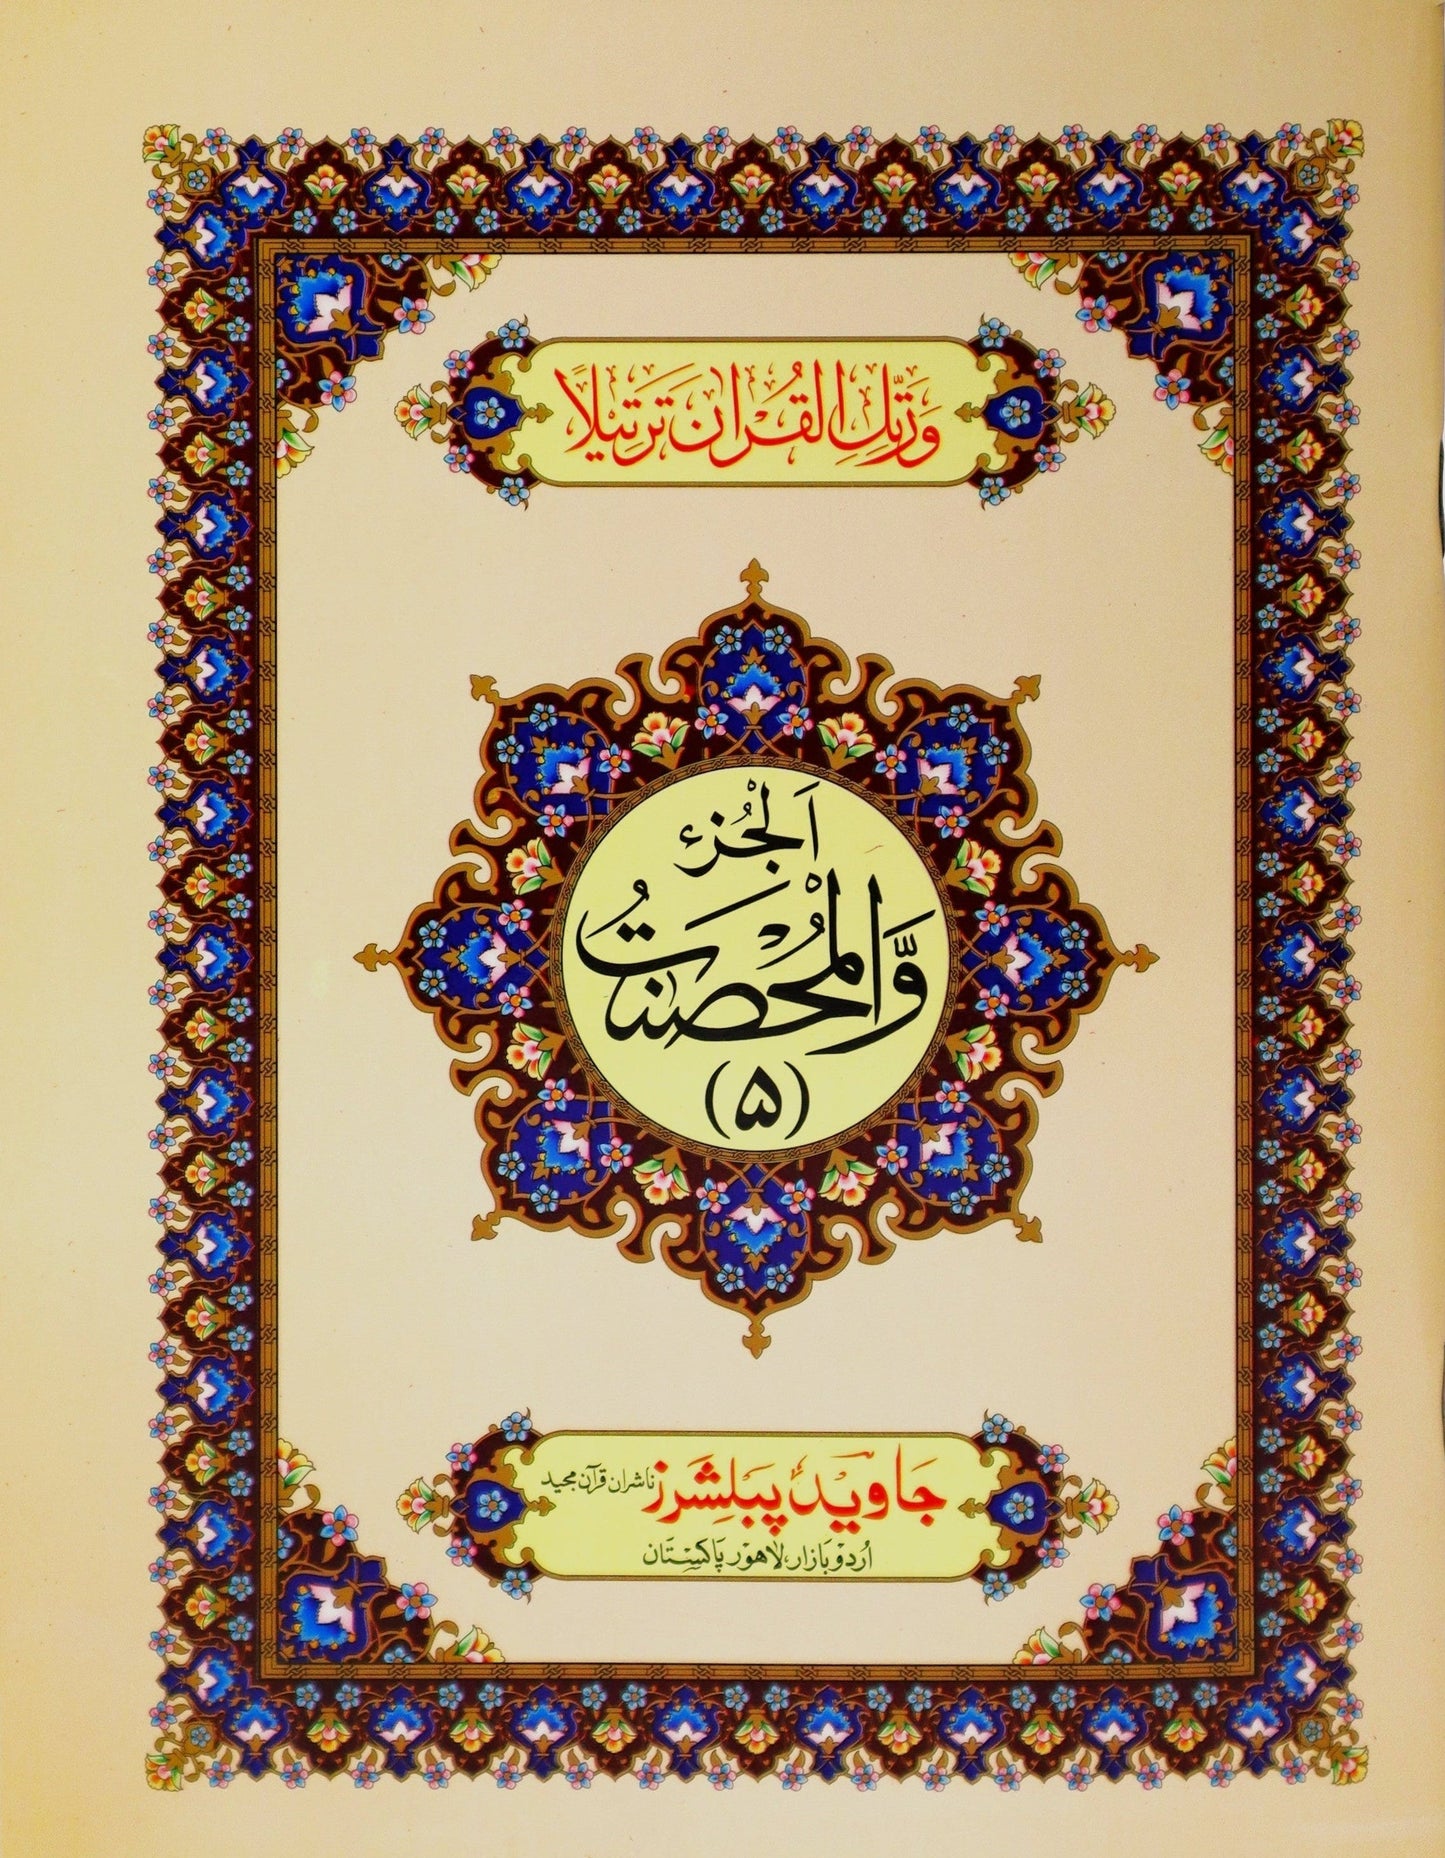 وَرَتِّلِ الْقُرْاٰنَ تَرْتِیْلًا
اَلْجُزْء
وَّالْمُحْصَنٰتُ
(۵)
جَاوید پَبلِشرَز ناشران قرآن مجید
اُردو بازار، لاهور پَاکِستَان